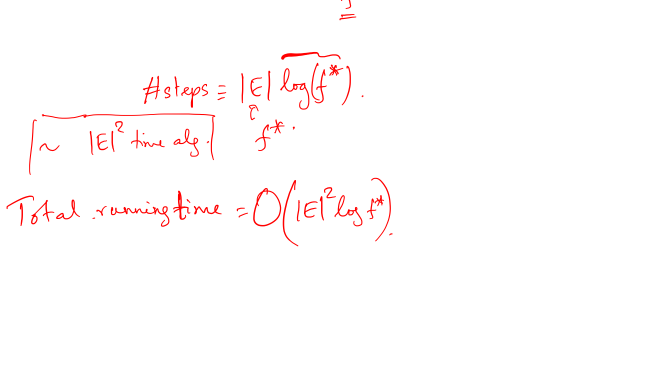 #steps ≡ |E| log(f*).
~ |E|² time alg. f*.
Total running time = O(|E|² log f*).